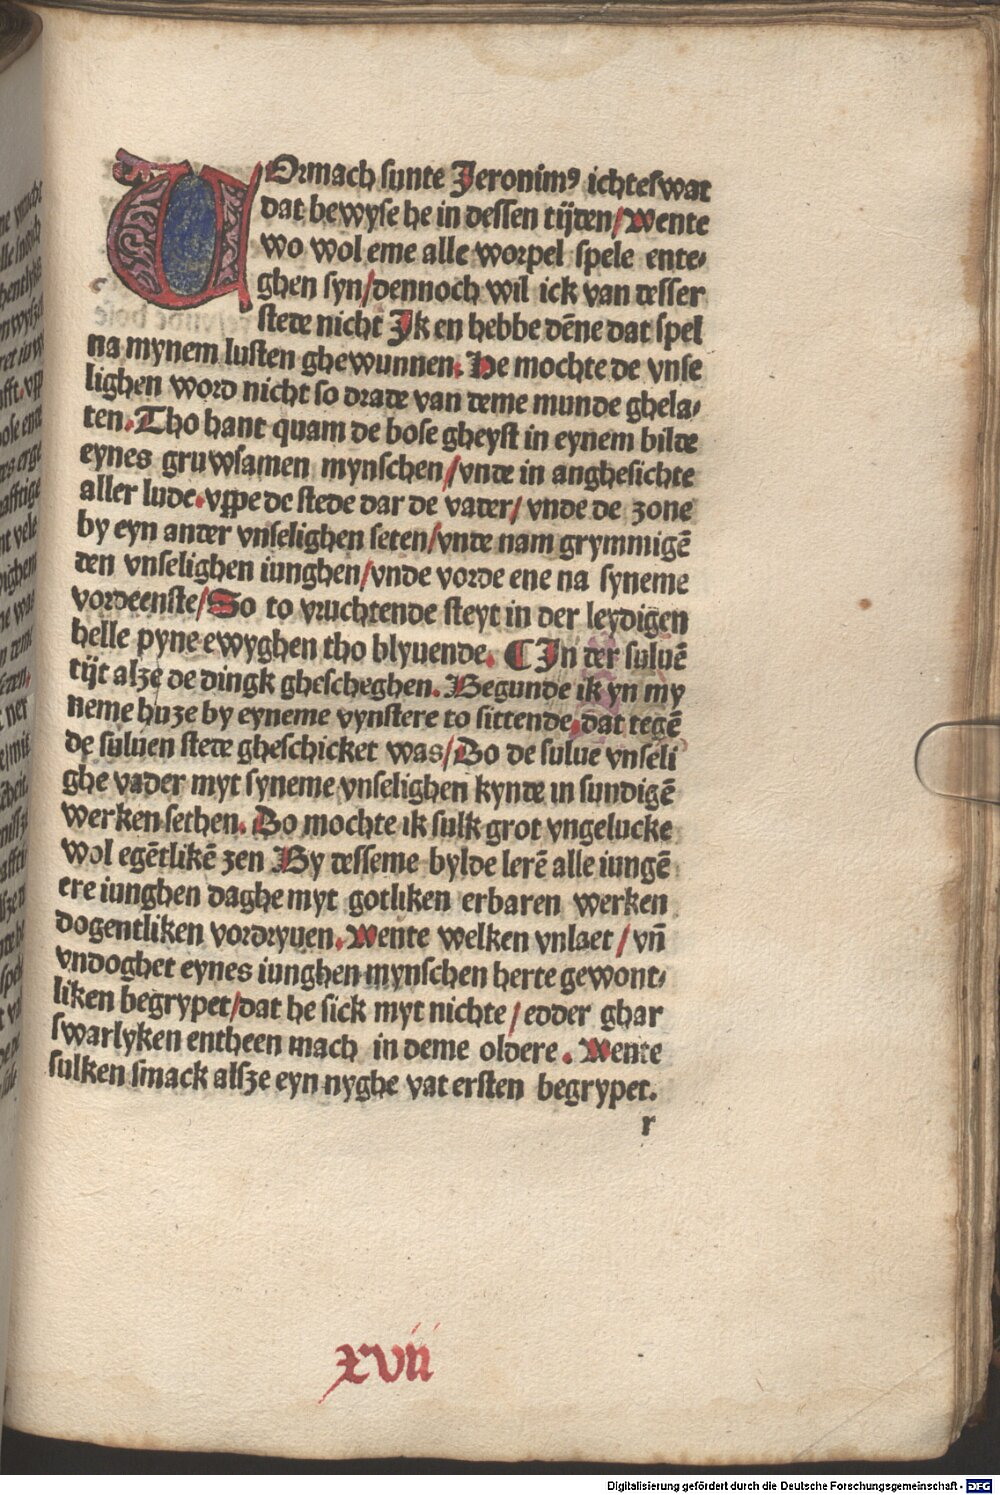 VOrmach sunte Jeronimꝰ ichteswat
dat bewyse he in dessen tijden/Wente
wo wol eme alle worpel spele ente⸗
ghen syn/dennoch wil ick van desser
stede nicht Jk en hebbe dēne dat spel
na mynem lusten ghewunnen. He mochte de vnse
lighen word nicht so drade van deme munde ghela⸗
ten. Tho hant quam de bose gheyst in eynem bilde
eynes gruwsamen mynschen/vnde in anghesichte
aller lude. vppe de stede dar de vader/ vnde de zone
by eyn ander vnselighen seten/vnde nam grymmigē
den vnselighen iunghen/vnde vorde ene na syneme
vordeenste/So to vruchtende steyt in der leydigen
helle pyne ewyghen tho blyuende. ¶ Jn der suluē
tijt alze de dingk ghescheghen. Begunde ik yn my
neme huze by eyneme vynstere to sittende. dat tegē
de suluen stede gheschicket was/Do de sulue vnseli
ghe vader myt syneme vnselighen kynde in sundigē
werken sethen. Do mochte ik sulk grot vngelucke
wol egētlikē zen By desseme bylde lerē alle iungē
ere iunghen daghe myt gotliken erbaren werken
dogentliken vordryuen. Wente welken vnlaet / vn̄
vndoghet eynes iunghen mynschen herte gewont⸗
liken begrypet/dat he sick myt nichte / edder ghar
swarlyken entheen mach in deme oldere. Wente
sulken smack alsze eyn nyghe vat ersten begrypet.
r
xvii
Digitalisierung gefördert durch die Deutsche Forschungsgemeinschaft - DFG